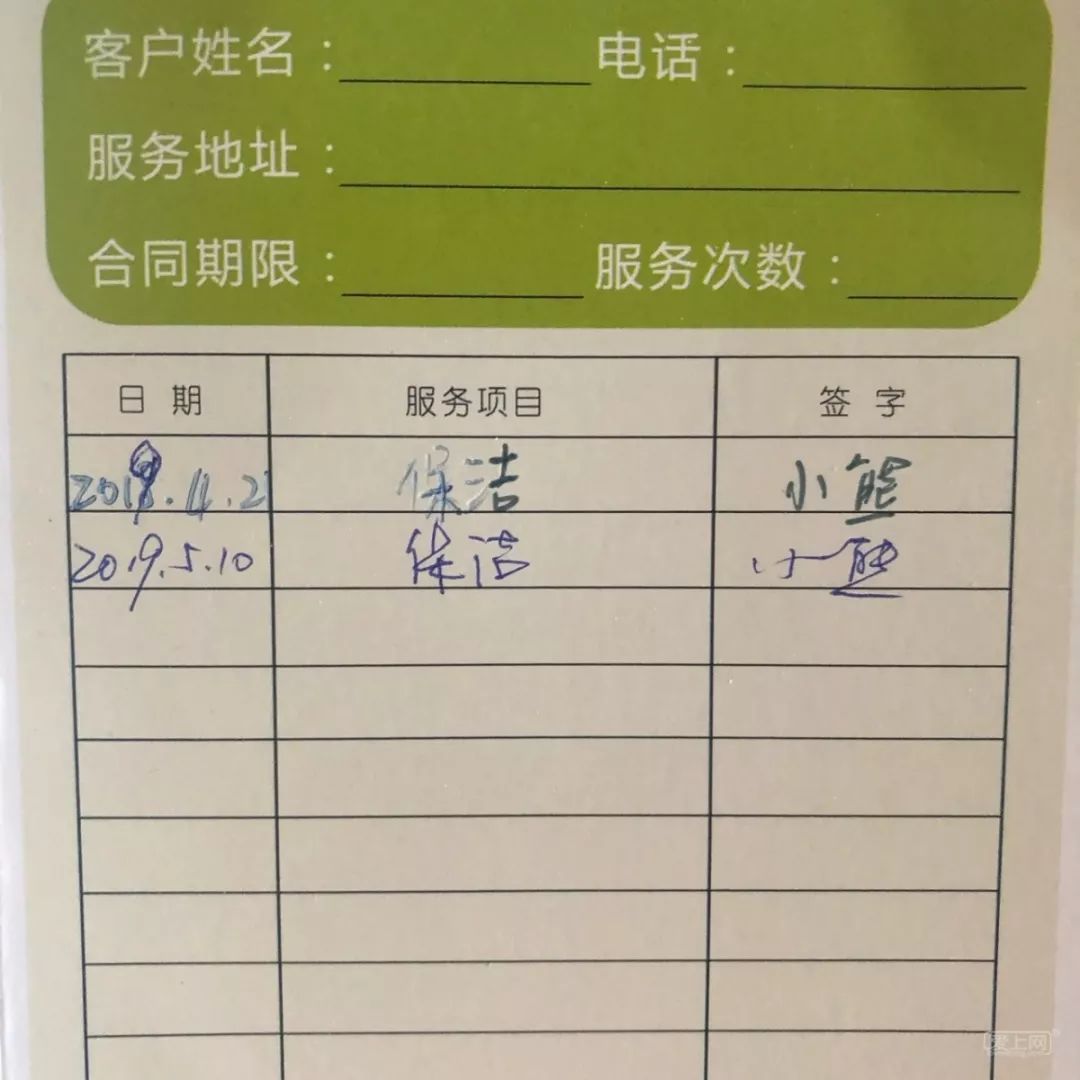 客户姓名： 电话：
服务地址：
合同期限： 服务次数：
日期 服务项目 签字
2019.4.2 保洁 小熊
2019.5.10 保洁 小熊
爱上网